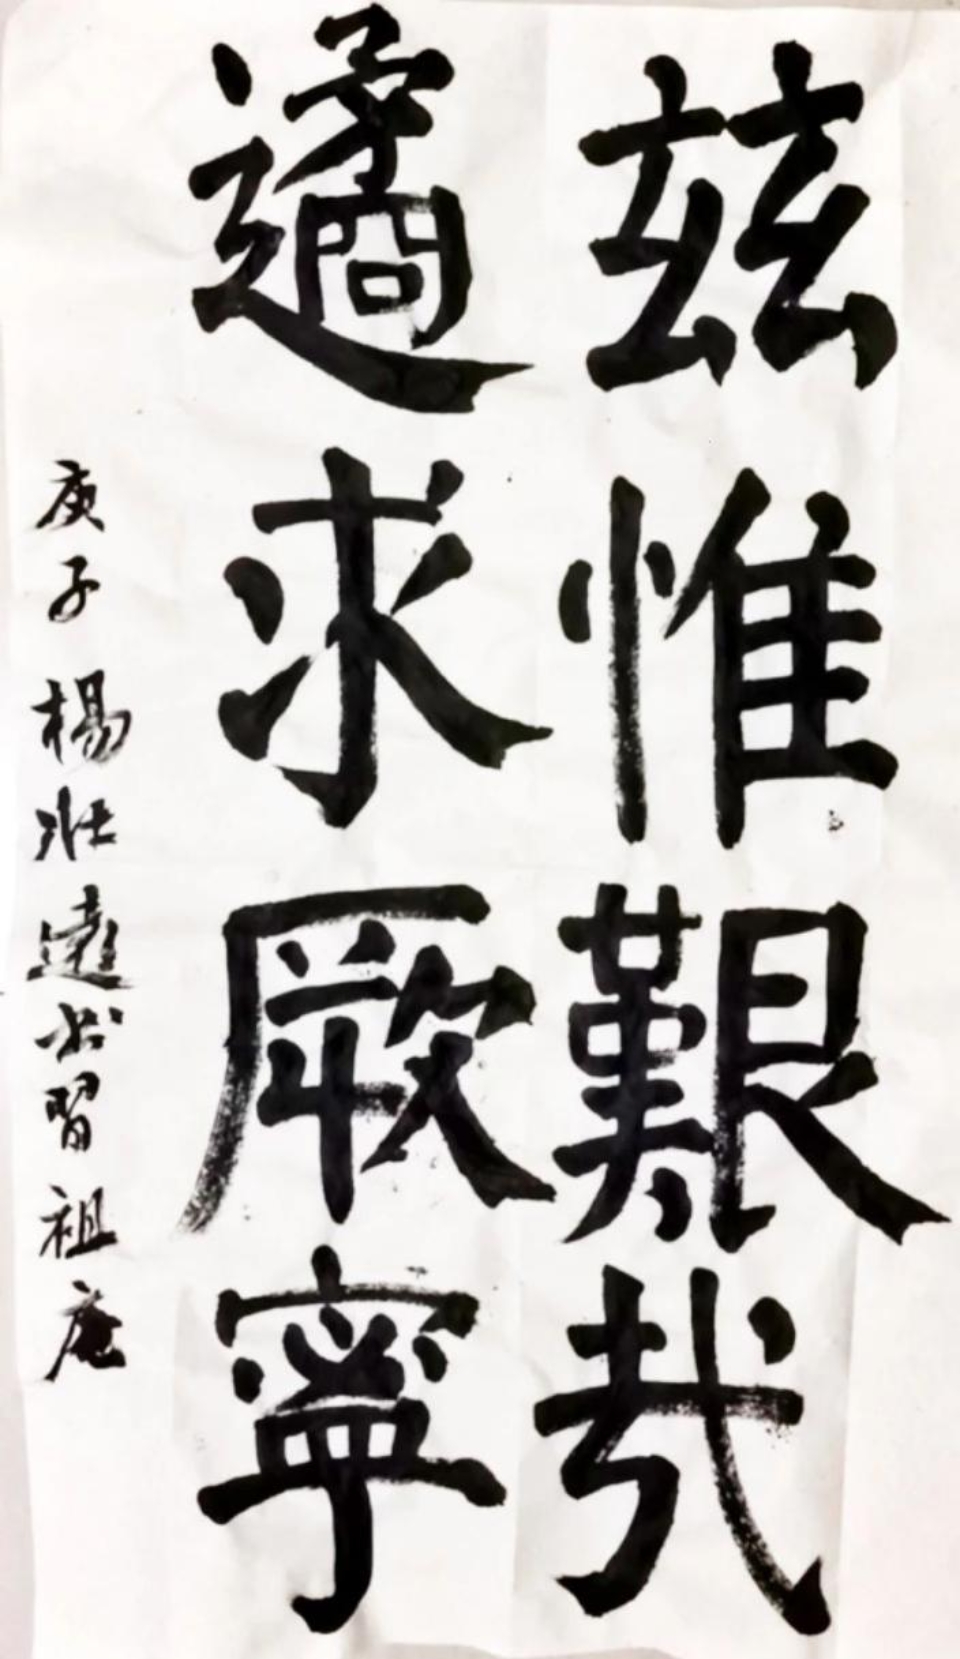 茲惟艱哉
遹求厥寧
庚子楊壯遠書習祖庵